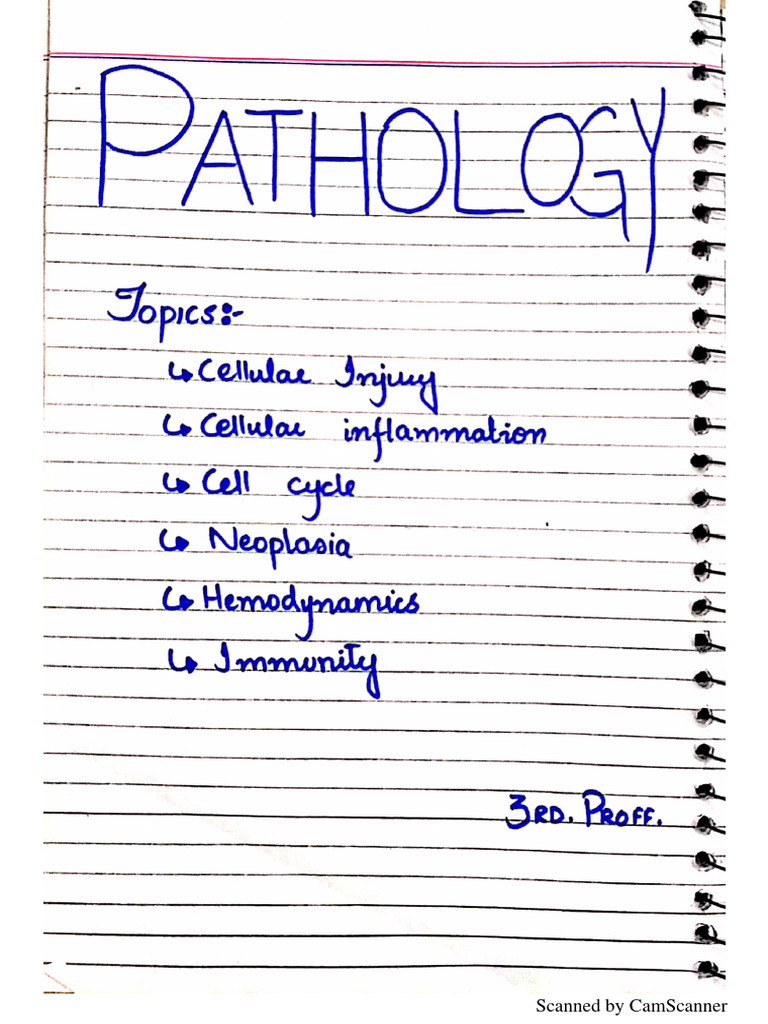 PATHOLOGY
Topics:-
↳ Cellular Injury
↳ Cellular inflammation
↳ Cell cycle
↳ Neoplasia
↳ Hemodynamics
↳ Immunity
3RD. PROFF.
Scanned by CamScanner